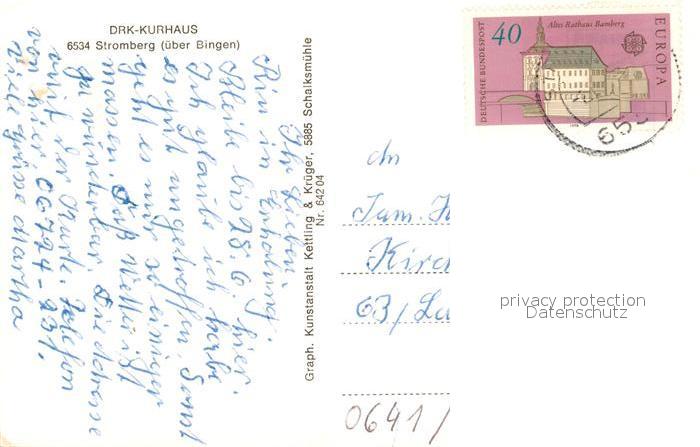 DRK-KURHAUS
6534 Stromberg (über Bingen)
Ihr Lieben.
Bin in Erholung.
Bleibe bis 28.6. hier.
Ich glaube ich habe
es gut angetroffen. Sonst
geht es mir so einiger
massen. Das Wetter ist
wunderbar. Die Adresse
auf der Karte. Telefon
von hier 06724-231.
Viele Grüsse Martha
Graph. Kunstanstalt Kettling & Krüger, 5885 Schalksmühle
Nr. 642 04
DEUTSCHE BUNDESPOST
40
Altes Rathaus Bamberg
EUROPA
653
An
Fam.
Kirch
63/
0641/
privacy protection
Datenschutz